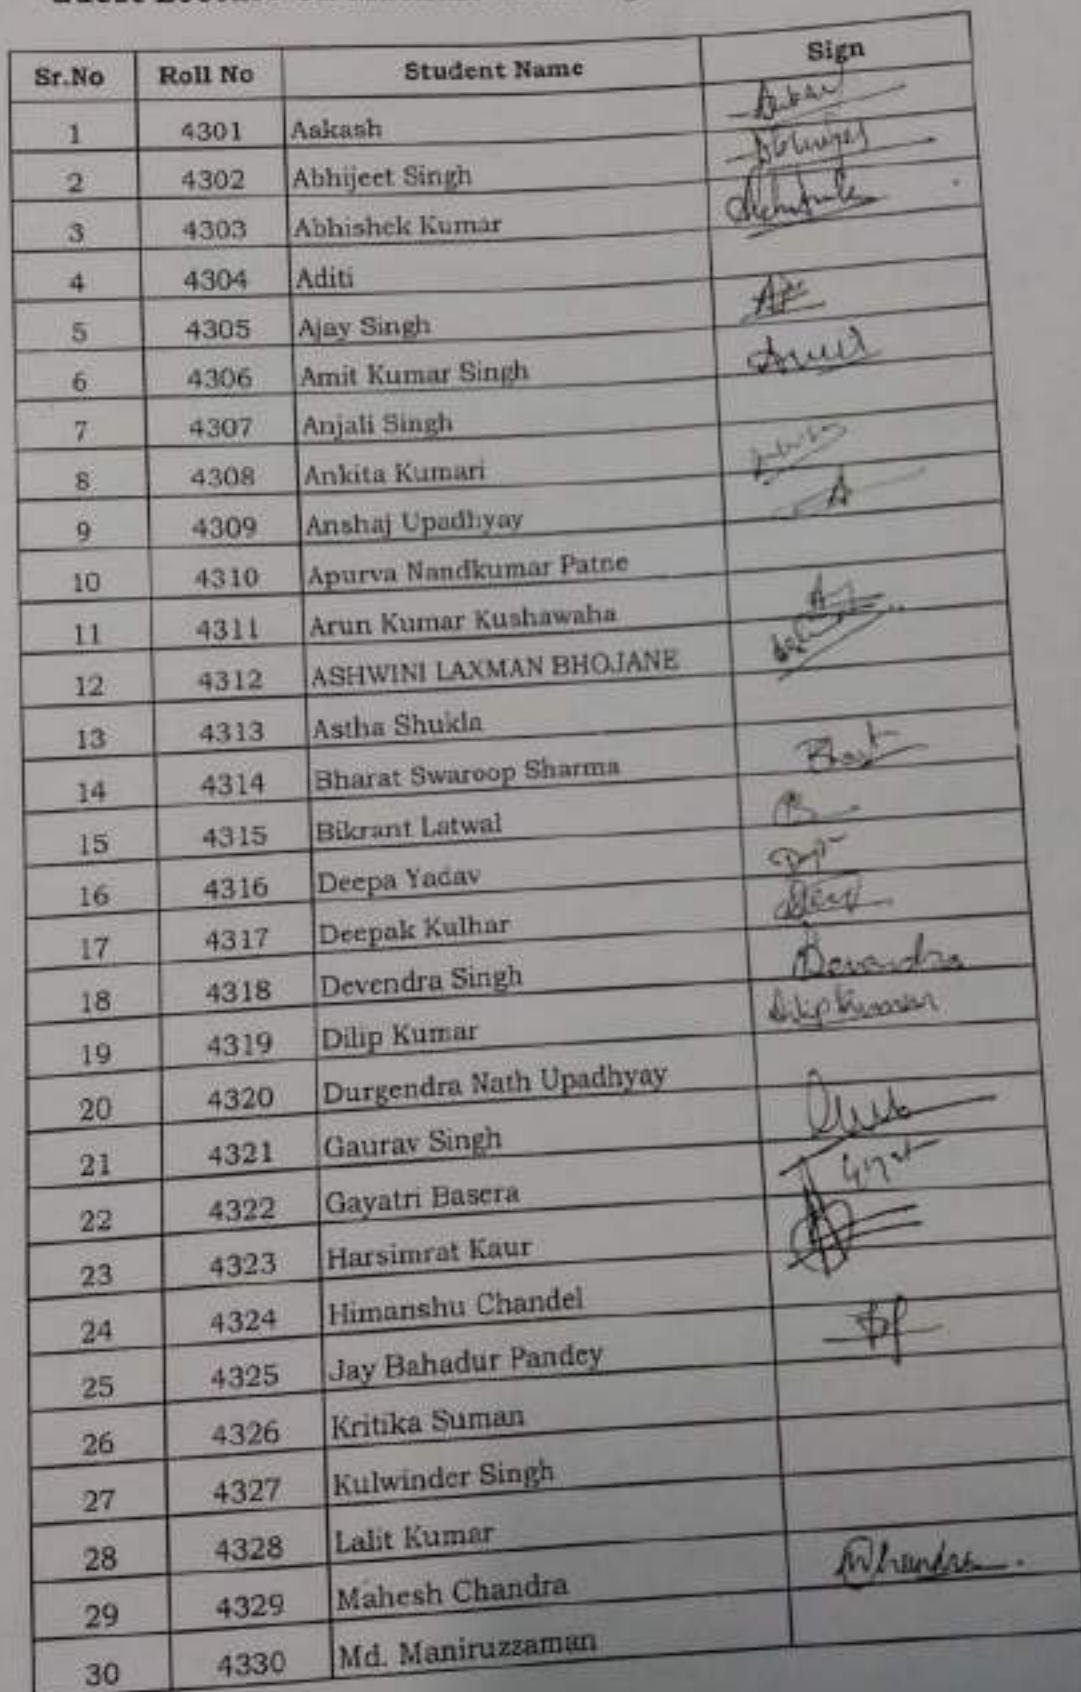 Sr.No Roll No Student Name Sign
1 4301 Aakash
2 4302 Abhijeet Singh
3 4303 Abhishek Kumar
4 4304 Aditi
5 4305 Ajay Singh
6 4306 Amit Kumar Singh
7 4307 Anjali Singh
8 4308 Ankita Kumari
9 4309 Anshaj Upadhyay
10 4310 Apurva Nandkumar Patne
11 4311 Arun Kumar Kushawaha
12 4312 ASHWINI LAXMAN BHOJANE
13 4313 Astha Shukla
14 4314 Bharat Swaroop Sharma
15 4315 Bikrant Latwal
16 4316 Deepa Yadav
17 4317 Deepak Kulhar
18 4318 Devendra Singh Devendra
19 4319 Dilip Kumar Dilip Kumar
20 4320 Durgendra Nath Upadhyay
21 4321 Gaurav Singh
22 4322 Gayatri Basera
23 4323 Harsimrat Kaur
24 4324 Himanshu Chandel
25 4325 Jay Bahadur Pandey
26 4326 Kritika Suman
27 4327 Kulwinder Singh
28 4328 Lalit Kumar
29 4329 Mahesh Chandra
30 4330 Md. Maniruzzaman